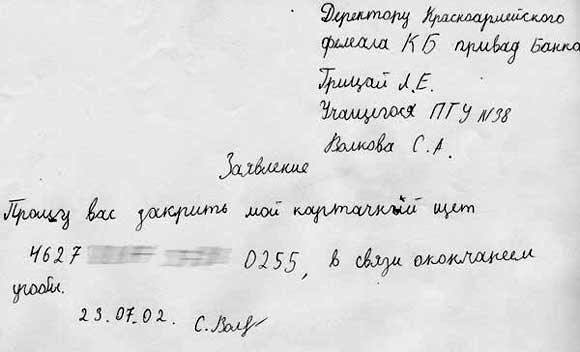 Директору Красноармейского
фелеала КБ привад Банка
Грицай Л.Е.
Учащегося ПТУ №38
Волкова С.А.
Заявление
Прошу вас закрить мой картачный щет
4627 0255, в связи окончанеем
учоби.
23.07.02. С.Волк